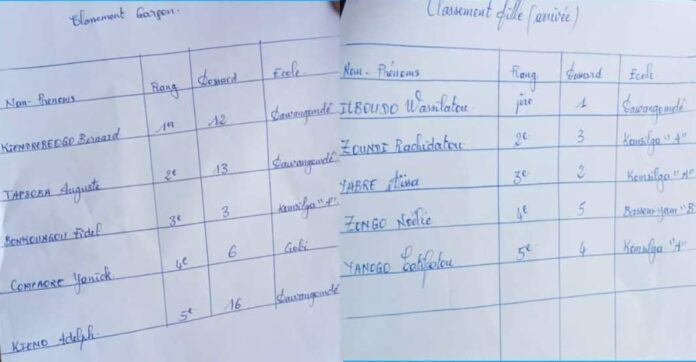 Classement Garçon.
Nom - Prénoms Rang Dossard Ecole
KIENDREBEOGO Bernard 1er 12 Dawangomdé
TAPSOBA Auguste 2e 13 Dawangomdé
BONKOUNGOU Fidel 3e 3 Komsilga "A"
COMPAORE Yanick 4e 6 Gobi
KIEMO Adolph. 5e 16 Dawangomdé
Classement fille (arrivée)
Nom - Prénoms Rang Dossard Ecole
ILBOUDO Wassilatou 1ère 1 Dawangomdé
ZOUNDI Rachidatou 2e 3 Komsilga "A"
YABRE Aïssa 3e 2 Komsilga "A"
ZONGO Noélie 4e 5 Bassem-yam "B
YANOGO 5e 4 Komsilga "A"